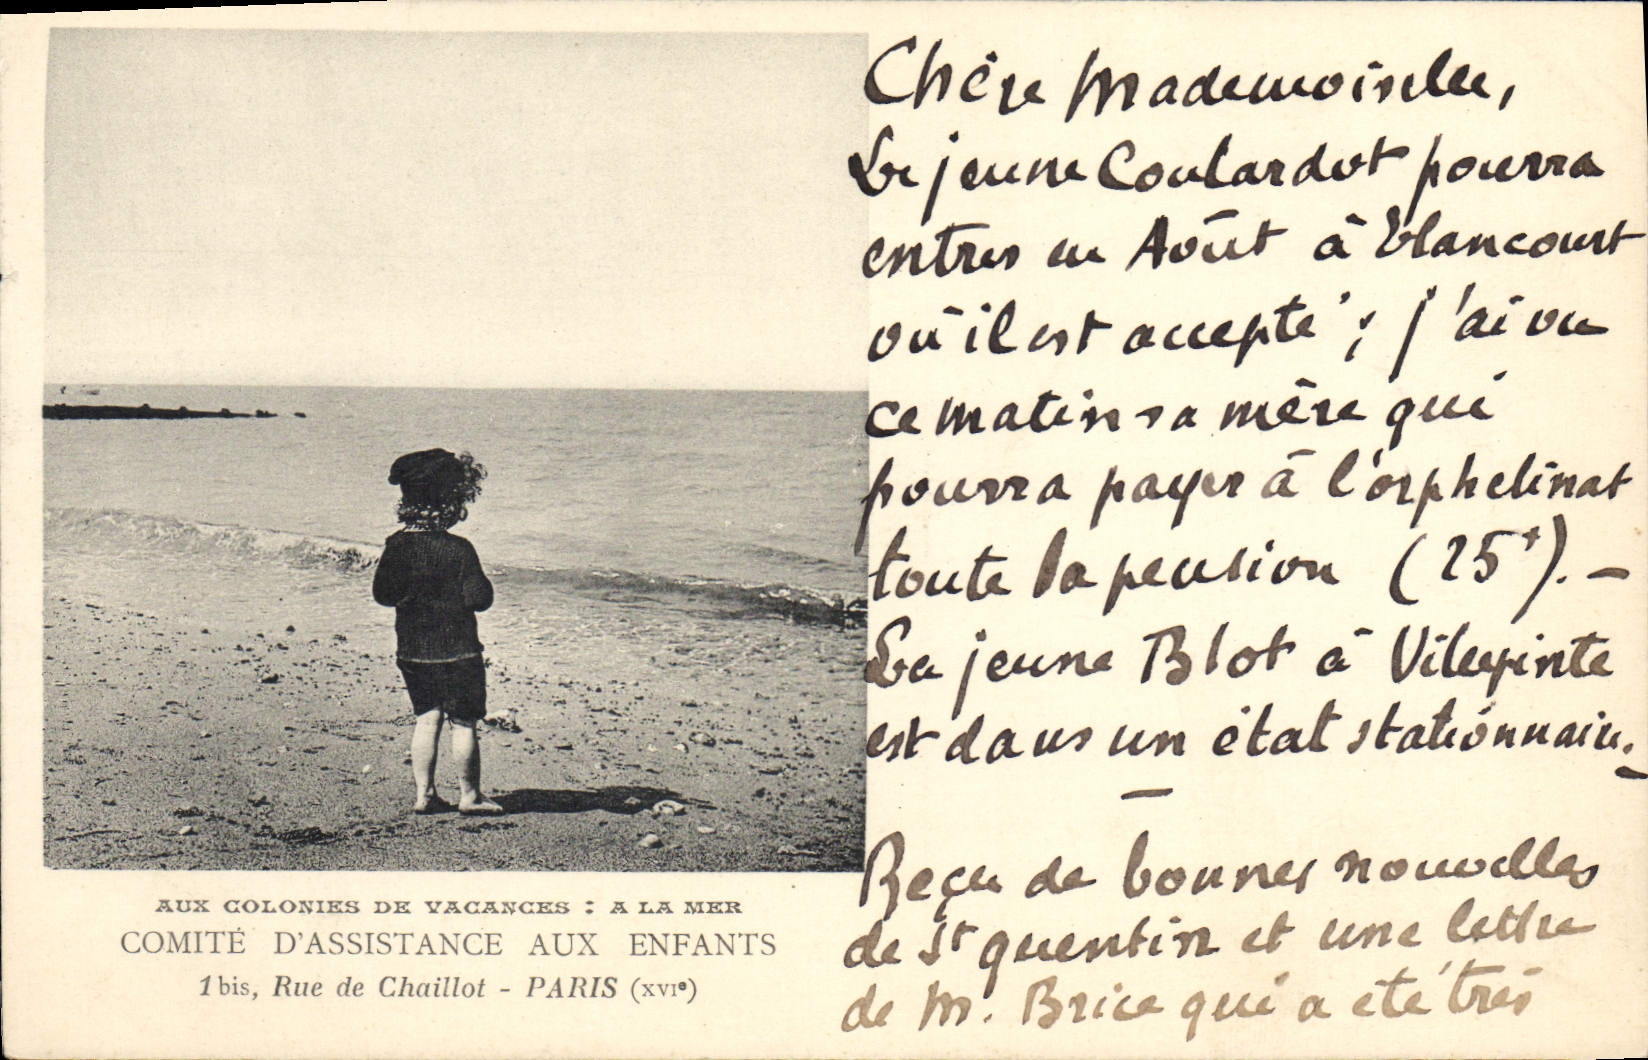 Chère Mademoiselle,
Le jeune Coulardot pourra
entrer en Août à Elancourt
où il est accepté ; j'ai vu
ce matin sa mère qui
pourra payer à l'orphelinat
toute la pension (25f). —
Le jeune Blot à Villepinte
est dans un état stationnaire. —
—
Reçu de bonnes nouvelles
de St Quentin et une lettre
de M. Brice qui a été très
AUX COLONIES DE VACANCES : A LA MER
COMITÉ D'ASSISTANCE AUX ENFANTS
1 bis, Rue de Chaillot - PARIS (XVIe)